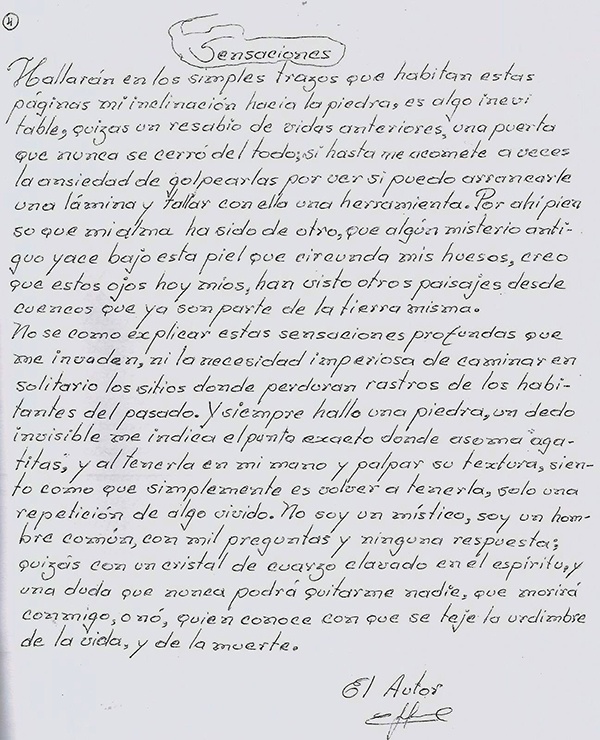 4
Sensaciones
Hallarán en los simples trazos que habitan estas
páginas mi inclinación hacia la piedra, es algo inevi
table, quizas un resabio de vidas anteriores, una puerta
que nunca se cerró del todo; si hasta me acomete a veces
la ansiedad de golpearlas por ver si puedo arrancarle
una lámina y tallar con ella una herramienta. Por ahí pien
so que mi alma ha sido de otro, que algún misterio anti-
guo yace bajo esta piel que circunda mis huesos, creo
que estos ojos hoy míos, han visto otros paisajes desde
cuencos que ya son parte de la tierra misma.
No se como explicar estas sensaciones profundas que
me invaden, ni la necesidad imperiosa de caminar en
solitario los sitios donde perduran rastros de los habi-
tantes del pasado. Y siempre hallo una piedra, un dedo
invisible me indica el punto exacto donde asoma "aga-
titas", y al tenerla en mi mano y palpar su textura, sien-
to como que simplemente es volver a tenerla, solo una
repetición de algo vivido. No soy un místico, soy un hom-
bre común, con mil preguntas y ninguna respuesta;
quizás con un cristal de cuarzo clavado en el espíritu, y
una duda que nunca podrá quitarme nadie, que morirá
conmigo, o nó, quien conoce con que se teje la urdimbre
de la vida, y de la muerte.
El Autor